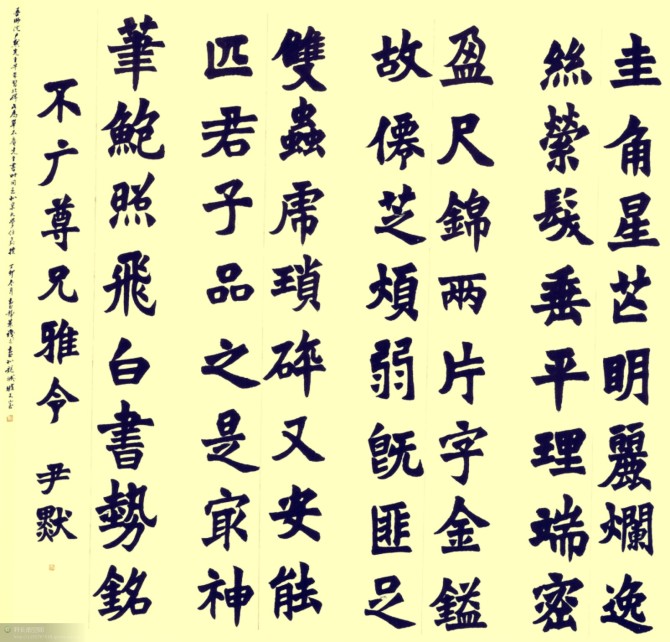 圭角星芒明麗爛逸
絲縈髮垂平理端密
盈尺錦两片字金鎰
故僊芝煩弱既匪足
雙蟲虒瑣碎又安能
匹君子品之是㝡神
筆鮑照飛白書勢銘
不广尊兄雅令 尹默